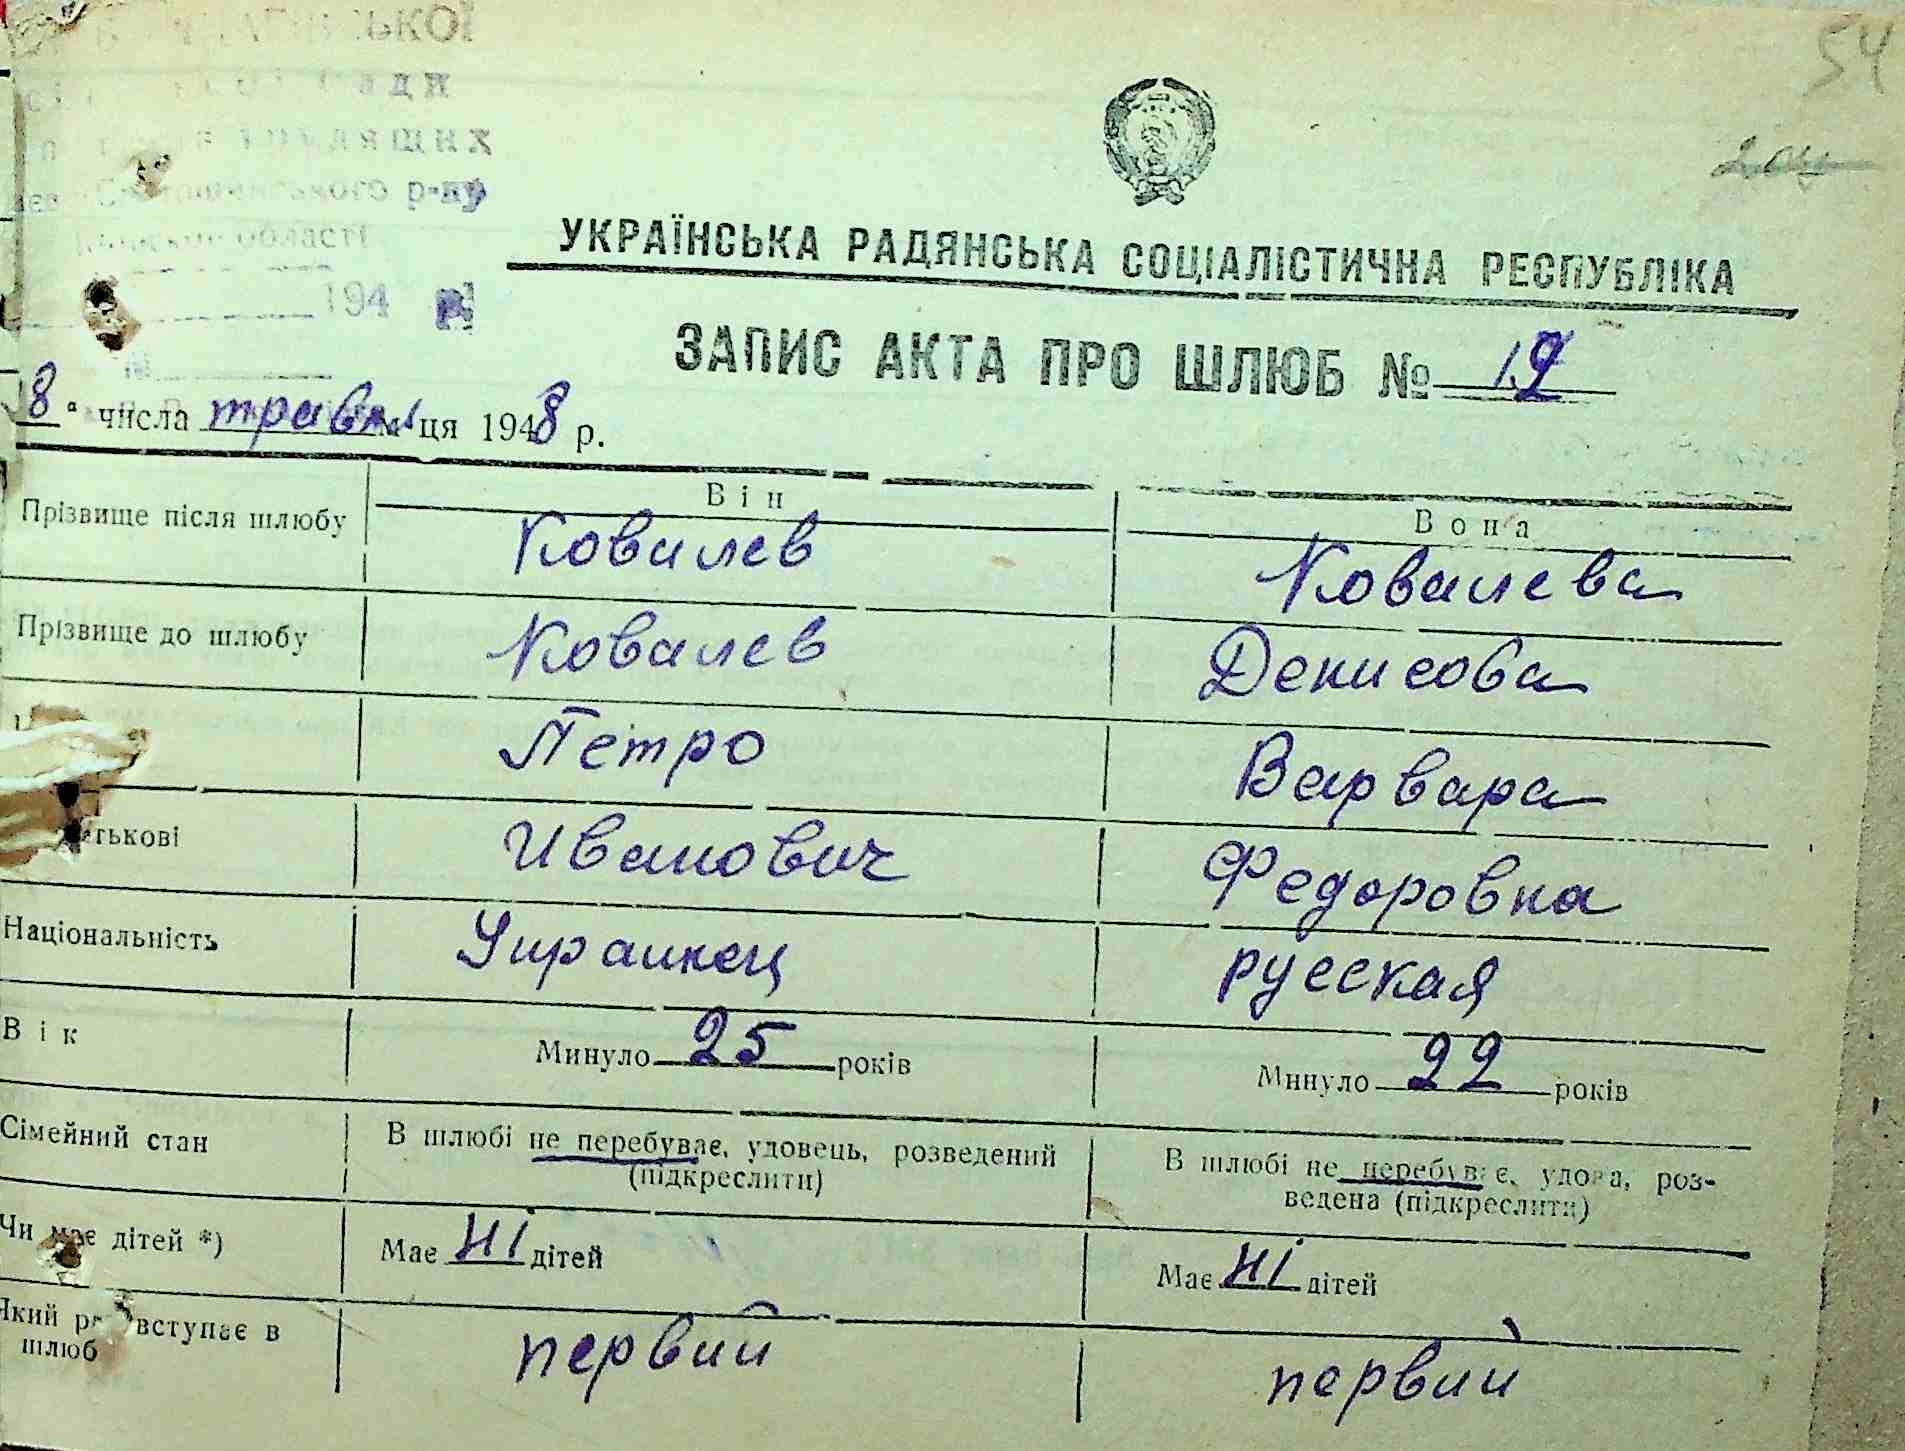 54
ради
трудящих
р-ну
області
194 р.
УКРАЇНСЬКА РАДЯНСЬКА СОЦІАЛІСТИЧНА РЕСПУБЛІКА
ЗАПИС АКТА ПРО ШЛЮБ № 12
8 " числа травня ця 1948 р.
Він Вона
Прізвище після шлюбу Ковалев Ковалева
Прізвище до шлюбу Ковалев Денисова
Петро Варвара
атькові Иванович Федоровна
Національність Украинец русская
Вік Минуло 25 років Минуло 22 років
Сімейний стан В шлюбі не перебуває, удовець, розведений (підкреслити) В шлюбі не перебуває, удова, роз-
ведена (підкреслити)
Чи має дітей *) Має ні дітей Має ні дітей
Який раз вступає в
шлюб первий первий